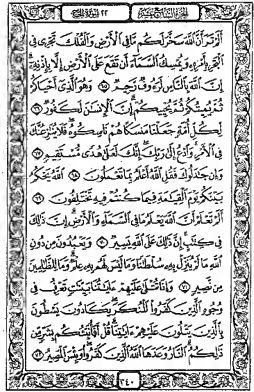 الجزء السابع عشر ٢٢ سورة الحج
أَلَمْ تَرَ أَنَّ ٱللَّهَ سَخَّرَ لَكُم مَّا فِى ٱلْأَرْضِ وَٱلْفُلْكَ تَجْرِى فِى
ٱلْبَحْرِ بِأَمْرِهِۦ وَيُمْسِكُ ٱلسَّمَآءَ أَن تَقَعَ عَلَى ٱلْأَرْضِ إِلَّا بِإِذْنِهِۦٓ
إِنَّ ٱللَّهَ بِٱلنَّاسِ لَرَءُوفٌ رَّحِيمٌ ٦٥ وَهُوَ ٱلَّذِىٓ أَحْيَاكُمْ
ثُمَّ يُمِيتُكُمْ ثُمَّ يُحْيِيكُمْ إِنَّ ٱلْإِنسَٰنَ لَكَفُورٌ ٦٦
لِّكُلِّ أُمَّةٍ جَعَلْنَا مَنسَكًا هُمْ نَاسِكُوهُ فَلَا يُنَٰزِعُنَّكَ
فِى ٱلْأَمْرِ وَٱدْعُ إِلَىٰ رَبِّكَ إِنَّكَ لَعَلَىٰ هُدًى مُّسْتَقِيمٍ ٦٧
وَإِن جَٰدَلُوكَ فَقُلِ ٱللَّهُ أَعْلَمُ بِمَا تَعْمَلُونَ ٦٨ ٱللَّهُ يَحْكُمُ
بَيْنَكُمْ يَوْمَ ٱلْقِيَٰمَةِ فِيمَا كُنتُمْ فِيهِ تَخْتَلِفُونَ ٦٩
أَلَمْ تَعْلَمْ أَنَّ ٱللَّهَ يَعْلَمُ مَا فِى ٱلسَّمَآءِ وَٱلْأَرْضِ إِنَّ ذَٰلِكَ
فِى كِتَٰبٍ إِنَّ ذَٰلِكَ عَلَى ٱللَّهِ يَسِيرٌ ٧٠ وَيَعْبُدُونَ مِن دُونِ
ٱللَّهِ مَا لَمْ يُنَزِّلْ بِهِۦ سُلْطَٰنًا وَمَا لَيْسَ لَهُم بِهِۦ عِلْمٌ وَمَا لِلظَّٰلِمِينَ
مِن نَّصِيرٍ ٧١ وَإِذَا تُتْلَىٰ عَلَيْهِمْ ءَايَٰتُنَا بَيِّنَٰتٍ تَعْرِفُ فِى
وُجُوهِ ٱلَّذِينَ كَفَرُوا۟ ٱلْمُنكَرَ يَكَادُونَ يَسْطُونَ
بِٱلَّذِينَ يَتْلُونَ عَلَيْهِمْ ءَايَٰتِنَا قُلْ أَفَأُنَبِّئُكُم بِشَرٍّ مِّن
ذَٰلِكُمُ ٱلنَّارُ وَعَدَهَا ٱللَّهُ ٱلَّذِينَ كَفَرُوا۟ وَبِئْسَ ٱلْمَصِيرُ ٧٢
٣٤٠